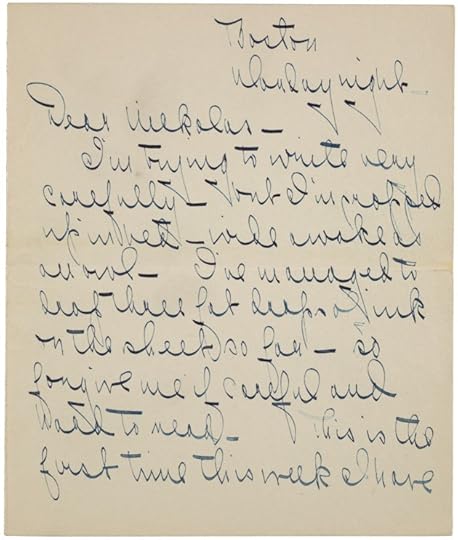 Boston
Monday night—
Dear Nickolas—
I'm trying to write very
carefully— but I'm propped
up in bed — wide awake as
an owl— I've managed to
drop three fat drops of ink
on the sheets so far— so
forgive me if careful and
hard to read— This is the
first time this week I have